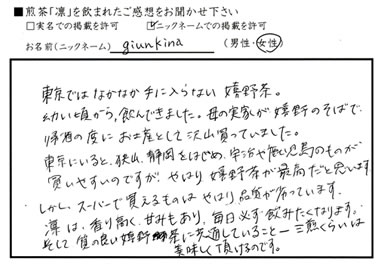 ■煎茶「凛」を飲まれたご感想をお聞かせ下さい
□実名での掲載を許可 ☑ニックネームでの掲載を許可
お名前(ニックネーム) giunkina (男性・女性)
東京ではなかなか手に入らない嬉野茶。
幼い頃から、飲んできました。母の実家が嬉野のそばで、
帰省の度にお土産として沢山買っていました。
東京にいると、狭山、静岡をはじめ、宇治や鹿児島のものが
買いやすいのですが、やはり嬉野茶が最高だと思います。
しかし、スーパーで買えるものはやはり品質が劣っています。
凛は、香り高く、甘みもあり、毎日必ず飲みたくなります。
そして質の良い嬉野茶に共通していること―三煎くらいは
美味しく頂けるのです。